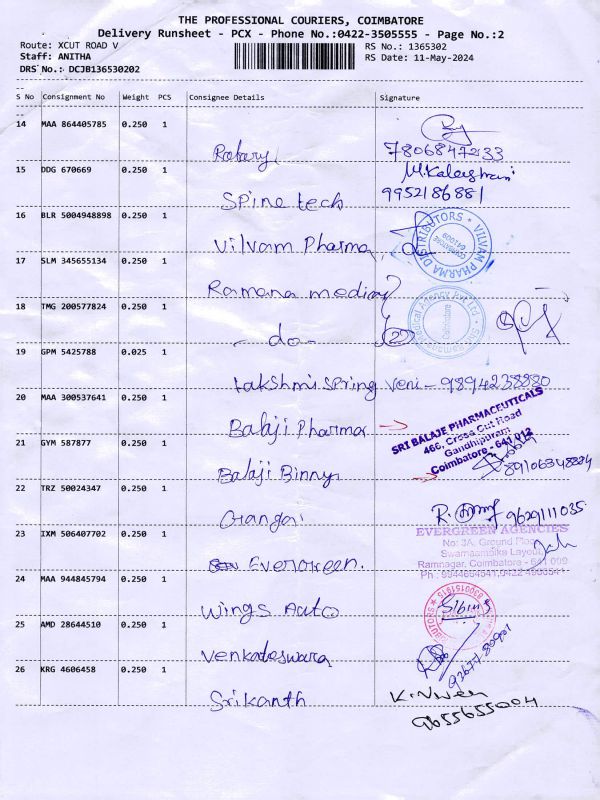 THE PROFESSIONAL COURIERS, COIMBATORE
Delivery Runsheet - PCX - Phone No.:0422-3505555 - Page No.:2
Route: XCUT ROAD V
RS No.: 1365302
Staff: ANITHA
RS Date: 11-May-2024
DRS No.: DCJB136530202
S No Consignment No Weight PCS Consignee Details Signature
14 MAA 864405785 0.250 1
7806847233
15 DDG 670669 0.250 1
Spine tech 9952186881
16 BLR 5004948898 0.250 1
Vilvam Pharma
VILVAM PHARMA DISTRIBUTORS
17 SLM 345655134 0.250 1
Ramana
18 TMG 200577824 0.250 1
- do -
19 GPM 5425788 0.025 1
Lakshmi Spring Veni - 9894238880
20 MAA 300537641 0.250 1
Balaji Pharma
SRI BALAJE PHARMACEUTICALS
466, Cross Cut Road
Gandhipuram
Coimbatore - 641 012
21 GYM 587877 0.250 1
Balaji Binny
22 TRZ 50024347 0.250 1
Ganga 9629111035
23 IXM 506407702 0.250 1
EVERGREEN AGENCIES
No: 3A, Ground Floor
Layout,
Ramnagar, Coimbatore - 641 009
Evergreen.
24 MAA 944845794 0.250 1
Wings Auto
25 AMD 28644510 0.250 1
Venkateswara
26 KRG 4606458 0.250 1
Srikanth
9655655004